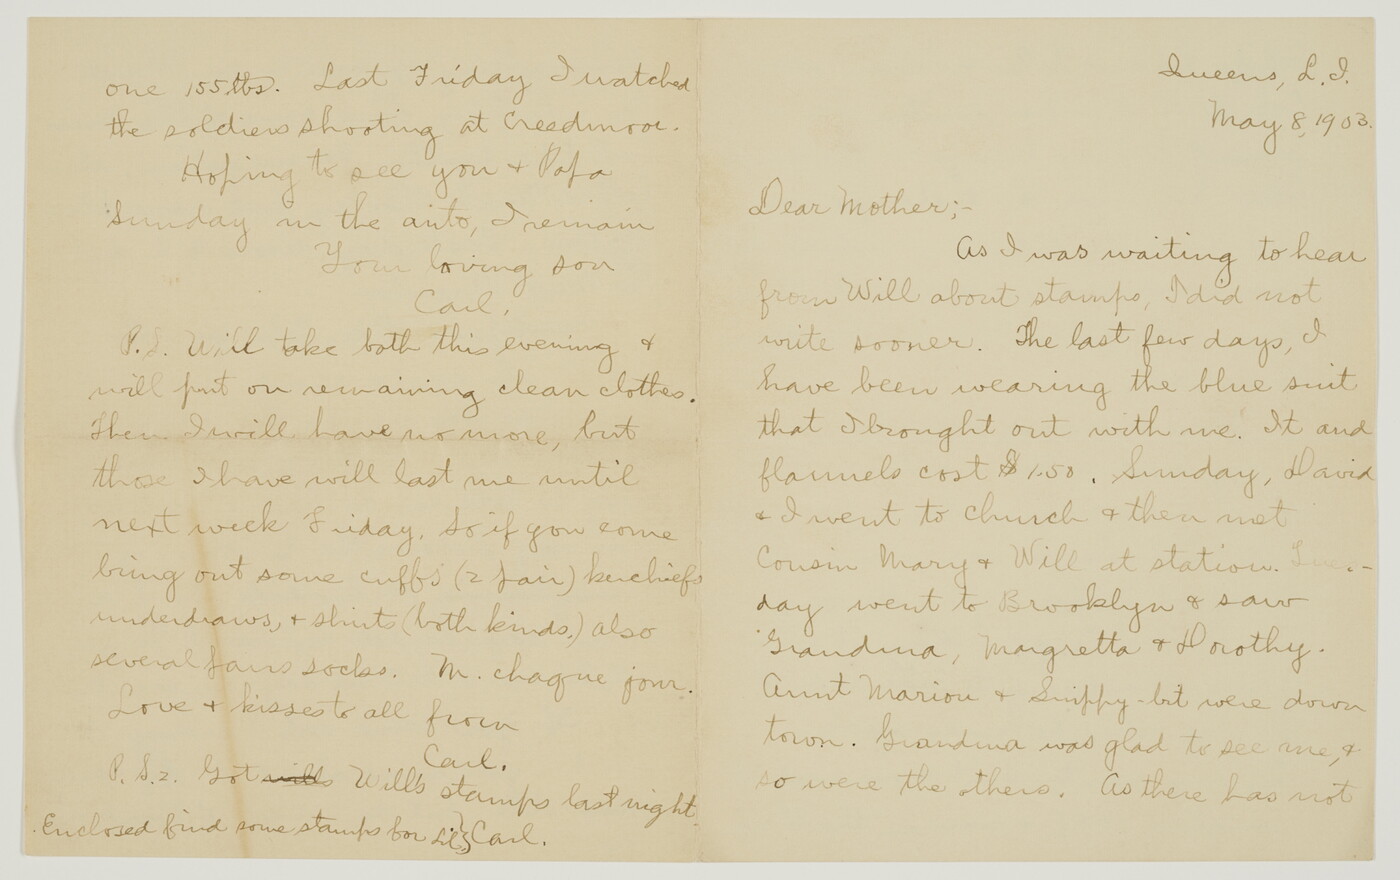 Queens, L.I.
May 8, 1903.
Dear Mother;-
As I was waiting to hear
from Will about stamps, I did not
write sooner. The last few days, I
have been wearing the blue suit
that I brought out with me. It and
flannels cost $1.50. Sunday, David
& I went to church & then met
Cousin Mary & Will at station. Tues.-
day went to Brooklyn & saw
Grandma, Margretta & Dorothy.
Aunt Marion & Snippy-bit were down
town. Grandma was glad to see me, &
so were the others. As there has not
one 155 lbs. Last Friday I watched
the soldiers shooting at Creedmoor.
Hoping to see you & Papa
Sunday in the auto, I remain
Your loving son
Carl.
P.S. Will take bath this evening &
will put on remaining clean clothes.
Then I will have no more, but
those I have will last me until
next week Friday. So if you come
bring out some cuffs (2 pair) kerchiefs
underdraws, & shirts (both kinds.) also
several pairs socks. M. chaque jour.
Love & kisses to all from
Carl.
P.S.2. Got wills Will's stamps last night
Enclosed find some stamps for Lil} Carl.